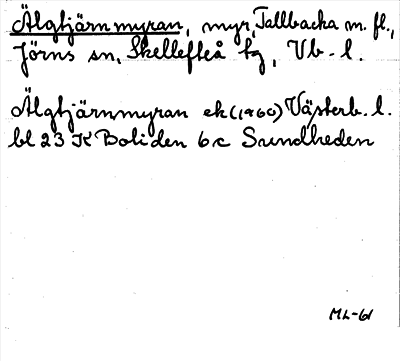 Älgtjärnmyran, myr, Tallbacka m. fl.,
Jörns sn, Skellefteå tg, Vb. l.
Älgtjärnmyran ek (1960) Västerb. l.
bl 23 K Boliden 6 c Sundheden
ML-61